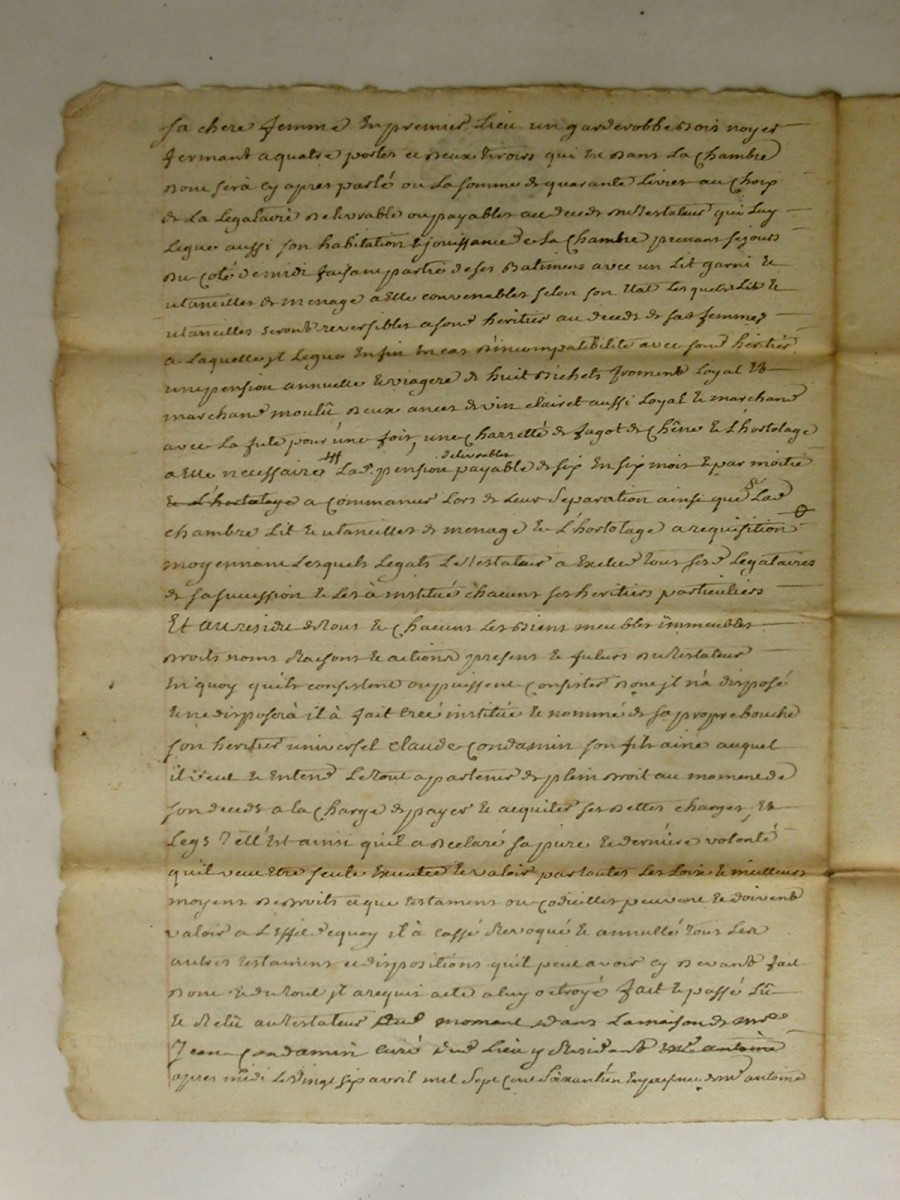 sa chere femme En premier Lieu un garderobbe Bois noyer
fermant a quatre portes et Deux tiroirs qui Est Dans La Chambre
Dont sera cy apres parlé ou La somme de quarante Livres au Choix
de La Legataire Delivrable ou payable au deceds du testateur qui Luy
Legue aussi son habitation & jouissance de La Chambre prenant sejours
du Coté de midi faisant partie de ses Batimens avec un Lit garni &
utancilles de menage a Elle convenables selon son Etat Lesquels Lit &
utancilles seront reversibles a son heritier au deceds de sad femme,
a Laquelle jl Legue Enfin En cas D'incompatibilité avec sond heritier
une pension annuelle & viagere de huit Bichets froment Loyal &
marchand moulû deux anees de vin clairet aussi Loyal & marchand
avec La fute pour une fois, une Charretté de fagot de Chêne & L'hortolage
a Elle necessaire La d. pension payable delivrables de six En six mois & par moitié
& L'hortolage a Commancer Lors de Leur Separation ainsi que Lad
chambre Lit & utancilles de menage & L'hortolage a requisition
moyennant Lesquels Legats Le testateur a Exclu tous sesd Legataires
de sa succession & Les à institué chacuns ses heritiers particuliers
Et au residu de tous & Chacuns Les Biens meubles immeubles
droits noms Raisons & actions present & futurs du testateur
En quoy qu'ils consistent ou puissent Consister Dont jl n'a disposé
& ne disposerà il à fait creé institué & nommé de sa propre bouche
son heritier universel Claude Condamin son fils ainé auquel
il veut & Entend Le tout apartenir de plein droit au moment de
son deceds a la Charge de payer & acquiter ses dettes charges, &
Legs Telle Est ainsi qu'il a declaré sa pure & derniere volonté
qu'il veut Etre seule Executée & valoir par toutes Les Loix & meilleurs
moyens de droits et que testamens ou Codicilles peuvent & doivent
valoir a L'effet de quoy il à cassé Revoqué & annullé tous Les
autres testamens et dispositions qu'il peut avoir cy devant fait
Dont & du tout jl a requis acte a luy octroyé fait & passé Lû
& Relû au testateur moment dans La maison de mre
Jean Condamin curé dud Lieu y Residant antoine
apres midi Le vingt six avril mil Sept Cent En presence de mr antoine